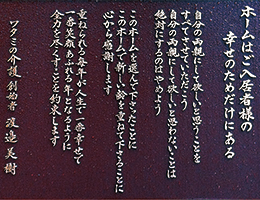 ホームはご入居者様の
幸せのためだけにある
自分の両親にして欲しいと思うことを
すべてさせていただこう
自分の両親にして欲しいと思わないことは
絶対にするのはやめよう
このホームを選んで下さったことに
このホームで新しい齢を重ねて下さることに
心から感謝します
重ねられる毎年が人生で一番幸せで
一番笑顔あふれる年となるように
全力を尽くすことを約束します
ワタミの介護 創始者 渡邉美樹